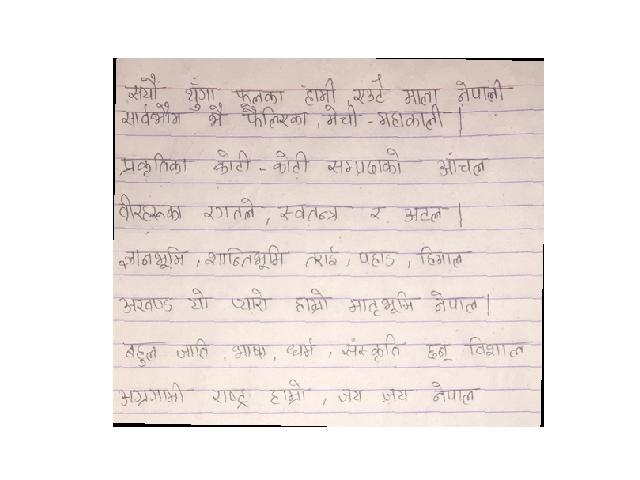 सयौं थुँगा फूलका हामी, एउटै माला नेपाली
सार्वभौम भै फैलिएका, मेची - महाकाली |
प्रकृतिका कोटी - कोटी सम्पदाको आंचल
वीरहरूका रगतले, स्वतन्त्र र अटल |
ज्ञानभूमि, शान्तिभूमि तराई, पहाड, हिमाल
अखण्ड यो प्यारो हाम्रो मातृभूमि नेपाल |
बहुल जाति, भाषा, धर्म, संस्कृति छन् विशाल
अग्रगामी राष्ट्र हाम्रो, जय जय नेपाल